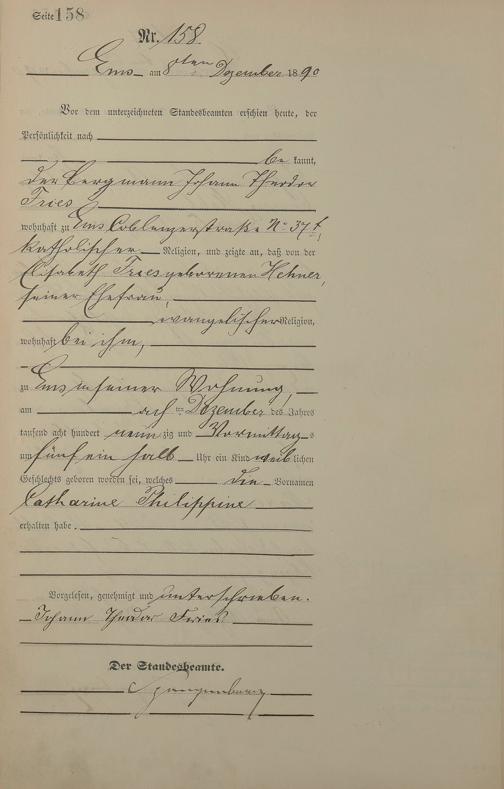 Seite 158
Nr. 158.
Ems am 8ten Dezember 1890
Vor dem unterzeichneten Standesbeamten erschien heute, der
Persönlichkeit nach
be kannt,
der Bergmann Johann Theodor
Fries
wohnhaft zu Ems Coblenzerstraße No 37
katholischer Religion, und zeigte an, daß von der
Elisabeth Fries geborenen Hehner,
seiner Ehefrau,
evangelischer Religion,
wohnhaft bei ihm,
zu Ems in seiner Wohnung,
am acht ten Dezember des Jahres
tausend acht hundert neun zig und Vormittags
um fünf ein halb Uhr ein Kind weiblichen
Geschlechts geboren worden sei, welches die Vornamen
Catharine Philippine
erhalten habe.
Vorgelesen, genehmigt und unterschrieben.
Johann Theodor Fries
Der Standesbeamte.
Spangenberg